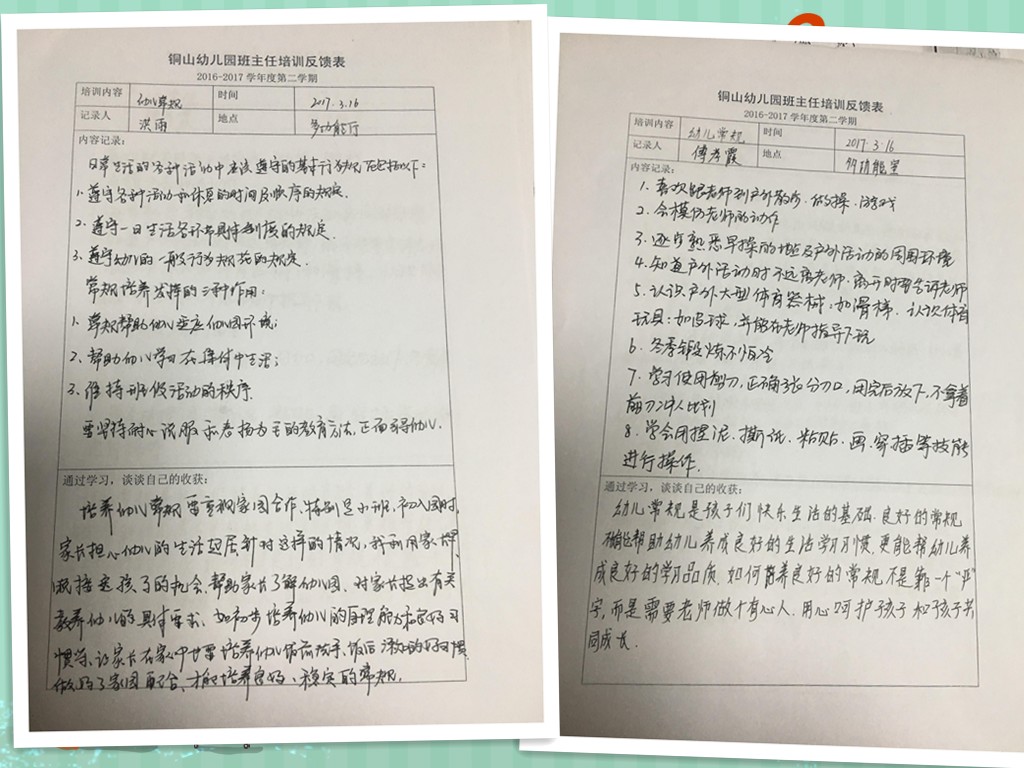 铜山幼儿园班主任培训反馈表
2016-2017 学年度第二学期
培训内容 幼儿常规 时间 2017.3.16
记录人 洪雨 地点 多功能厅
内容记录:
日常生活的各种活动中应该遵守的基本行为规范包括以下:
1. 遵守各种活动和休息的时间及顺序的规定.
2. 遵守一日生活各环节具体制度的规定.
3. 遵守幼儿的一般行为规范的规定.
常规培养发挥的三种作用:
1. 常规帮助幼儿适应幼儿园环境;
2. 帮助幼儿学习在集体中生活;
3. 维持班级活动的秩序.
要坚持耐心说服示表扬为主的教育方法,正面引导幼儿.
通过学习,谈谈自己的收获:
培养幼儿常规需重视家园合作,特别是小班,初入园时,
家长担心幼儿的生活起居针对这样的情况,我利用家长早、
晚接送孩子的机会,帮助家长了解幼儿园,对家长提出有关
教养幼儿的具体要求,如初步培养幼儿的自理能力良好习
惯等,让家长在家中也要培养幼儿饭前洗手、饭后漱口的好习惯
做好了家园配合,才能培养良好、稳定的常规.
铜山幼儿园班主任培训反馈表
2016-2017 学年度第二学期
培训内容 幼儿常规 时间 2017.3.16
记录人 傅孝霞 地点 多功能室
内容记录:
1. 喜欢跟老师到户外散步.做操.游戏
2. 会模仿老师的动作
3. 逐步熟悉早操的地点及户外活动的周围环境
4. 知道户外活动时不远离老师.离开时要告诉老师
5. 认识户外大型体育器械:如滑梯.认识体育
玩具:如皮球,并能在老师指导下玩
6. 冬季锻炼不怕冷
7. 学习使用剪刀,正确张分刀口,用完后放下,不拿着
剪刀冲人比划
8. 学会用捏泥.撕纸.粘贴.画.穿插等技能
进行操作.
通过学习,谈谈自己的收获:
幼儿常规是孩子们快乐生活的基础.良好的常规
不仅能帮助幼儿养成良好的生活学习习惯,更能帮幼儿养
成良好的学习品质.如何培养良好的常规不是靠一个"严"
字,而是需要老师做个有心人.用心呵护孩子和孩子共
同成长.